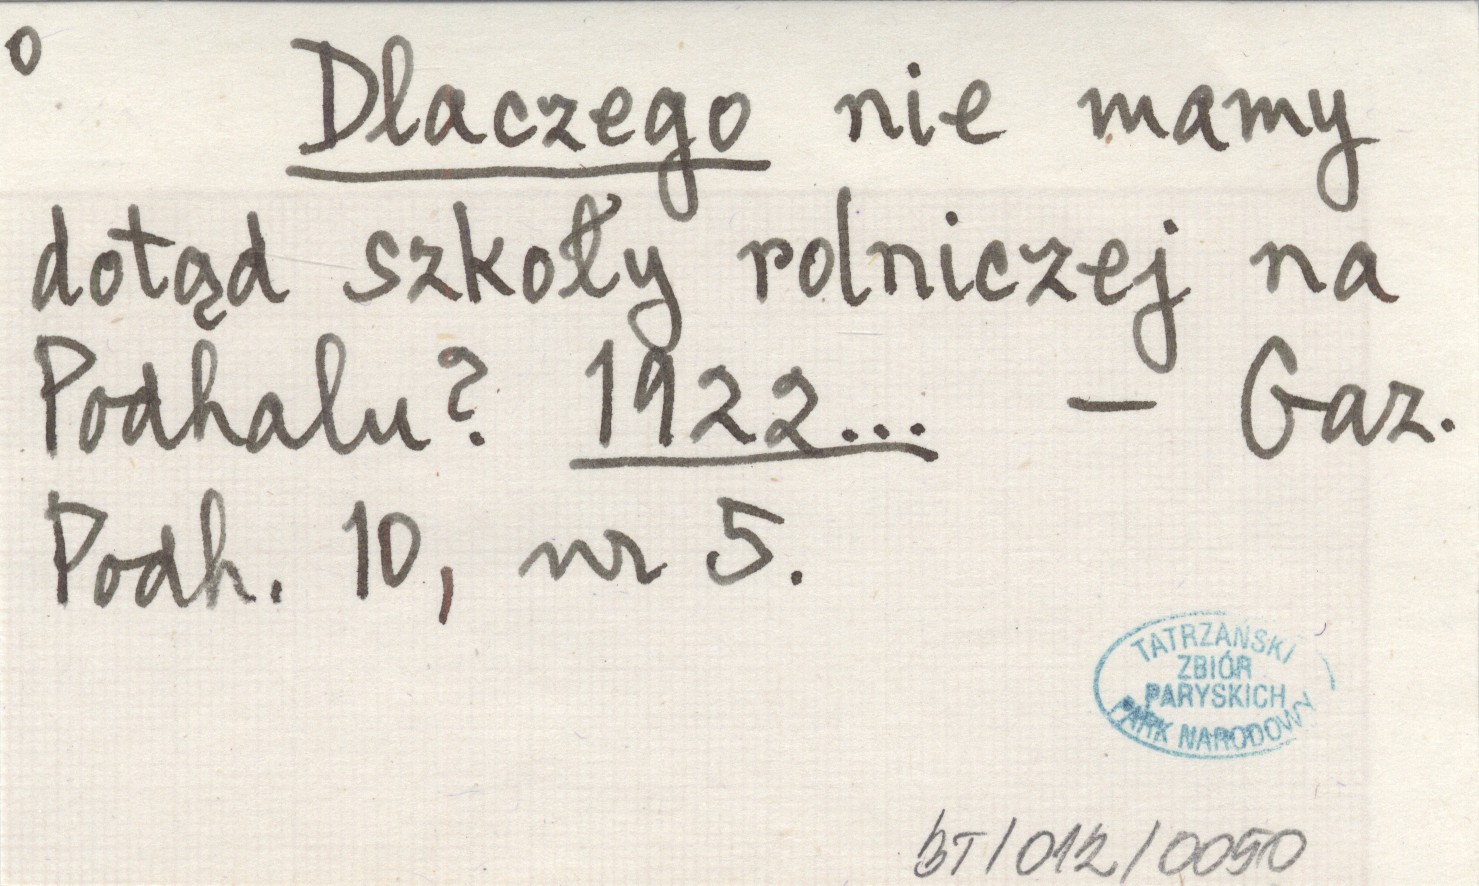 o
Dlaczego nie mamy
dotąd szkoły rolniczej na
Podhalu? 1922... – Gaz.
Podh. 10, nr 5.
TATRZAŃSKI
ZBIÓR
PARYSKICH
PARK NARODOWY
BT/012/0050